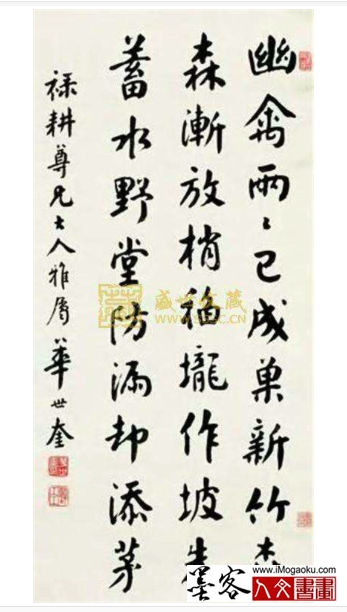 幽禽兩〻已成巢新竹森
森漸放梢稻壠作坡先
蓄水野堂防漏却添茅
祿耕尊兄大人雅屬 華世奎
盛世收藏
www.iMogaoku.com
墨客 人文書畫